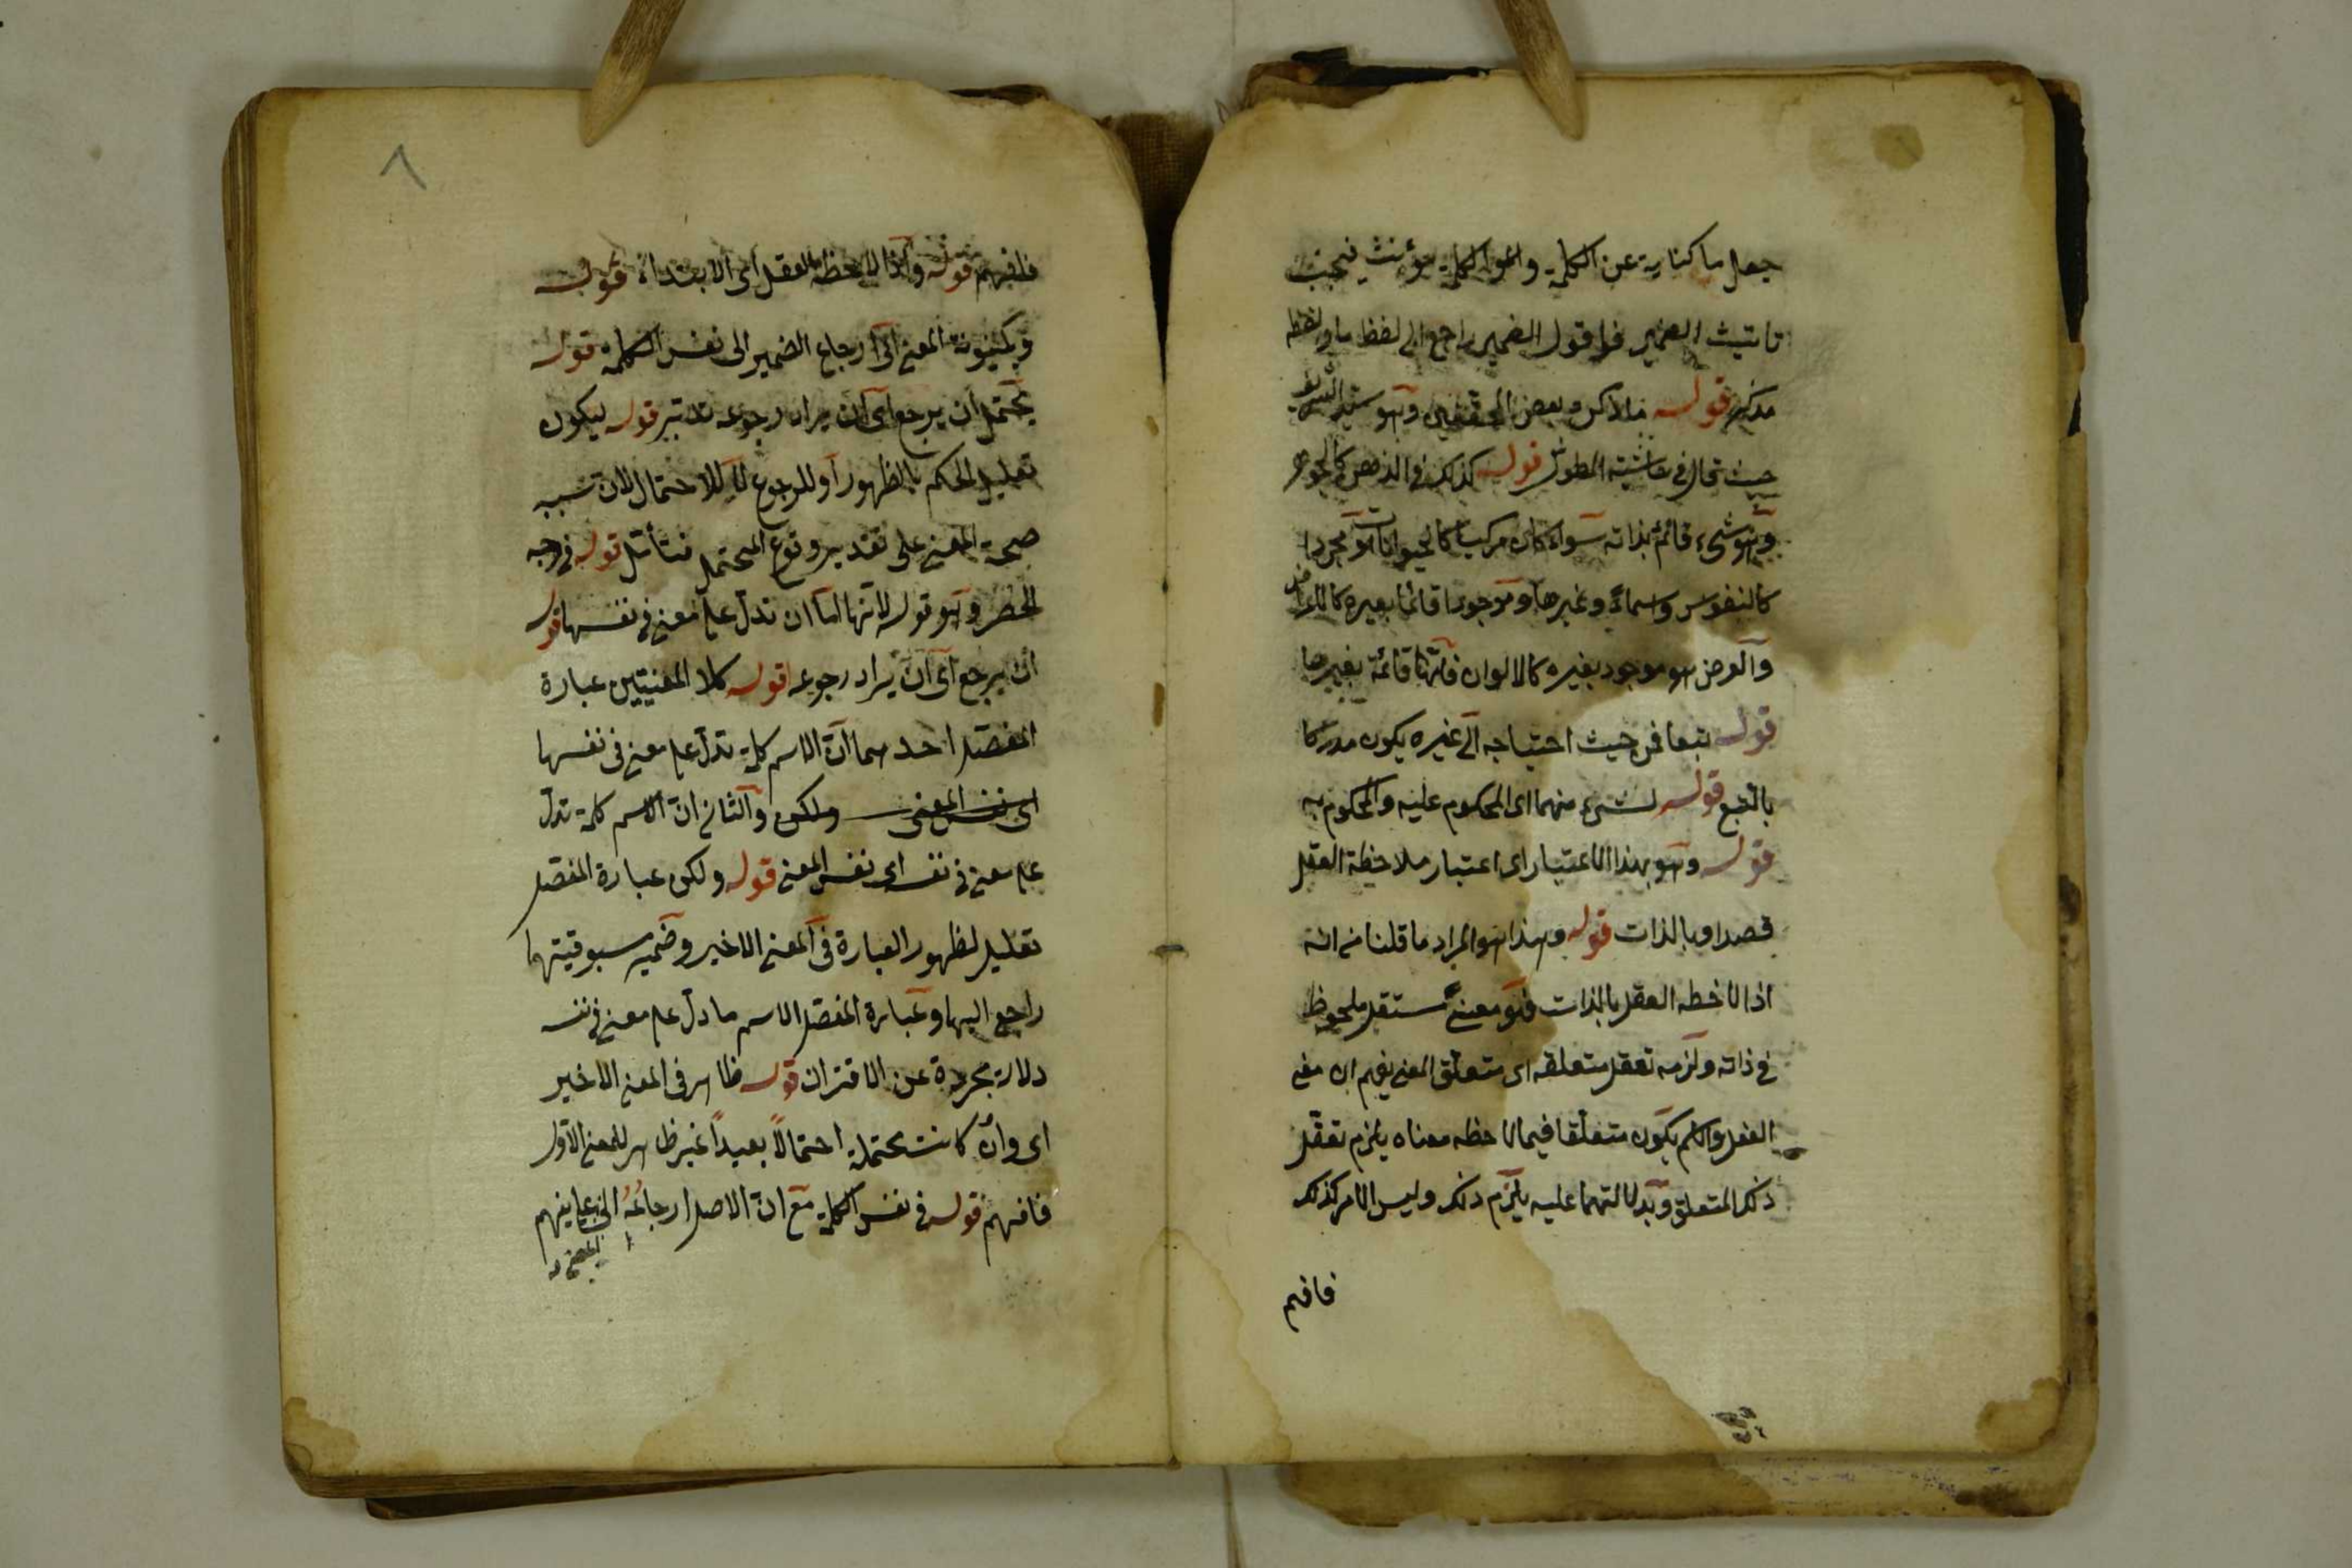 جعل ما كناية عن الكلمة والكلمة مؤنث فيجب
تانيث الضمير فاقول الضمير راجع الى لفظ ما ولفظ ما
مذكر قوله ما ذكره بعض المحققين وهو سيد الشريف
حيث قال في حاشية المطول قوله كذلك في الذهن كالجوهر
وهو شيء قائم بذاته سواء كان مركبا كالحيوانات او مجردا
كالنفوس وسماء وغيرها وموجودا قائما بغيره كالاعراض
والعرض هو موجود بغيره كالالوان فانها قائمة بغيرها
قوله تبعا فمن حيث احتياجه الى غيره يكون مدركا
بالتبع قوله لشيء منهما اى المحكوم عليه والمحكوم به
قوله وهو بهذا الاعتبار اى اعتبار ملاحظة العقل
قصدا وبالذات قوله وهذا هو المراد ما قلنا من انه
اذا لاحظه العقل بالذات فهو معنى مستقل ملحوظ
في ذاته ولزمه تعقل متعلقه اى متعلق المعنى يفهم ان معنى
الفعل والاسم يكون متعلقا فيما لاحظه معناه يلزم تعقل
ذلك المتعلق وبدلالتهما عليه يلزم ذلك وليس الامر كذلك
فافهم
٨
فافهم قوله واذا لاحظه العقل اى الابتداء قوله
وبكينونة المعنى اى ارجاع الضمير الى نفس الكلمة قوله
يحتمل ان يرجع اى ان يراد رجوعه تدبر قوله ليكون
تعليل الحكم بالظهور او للرجوع لا للاحتمال لان سببه
صحة المعنى على تقدير وقوع المحتمل فتأمل قوله في وجه
الحصر وهو قوله لانها اما ان تدل على معنى في نفسها قوله
ان يرجع اى ان يراد رجوعه قوله كلا المعنيين عبارة
المفصل احدهما ان الاسم كلمة تدل على معنى في نفسها
اى نفس المعنى ولكن والثاني ان الاسم كلمة تدل
على معنى في نفسه اى نفس المعنى قوله ولكن عبارة المفصل
تعليل لظهور العبارة في المعنى الاخير وضمير مسبوقيتها
راجع اليها وعبارة المفصل الاسم ما دل على معنى في نفسه
دلالة مجردة عن الاقتران قوله ظاهر في المعنى الاخير
اى وان كانت محتملة احتمالاً بعيداً غير ظاهر للمعنى الاول
فافهم قوله في نفس الكلمة مع ان الاصل ارجاعه الى ما يفهم
المعنى